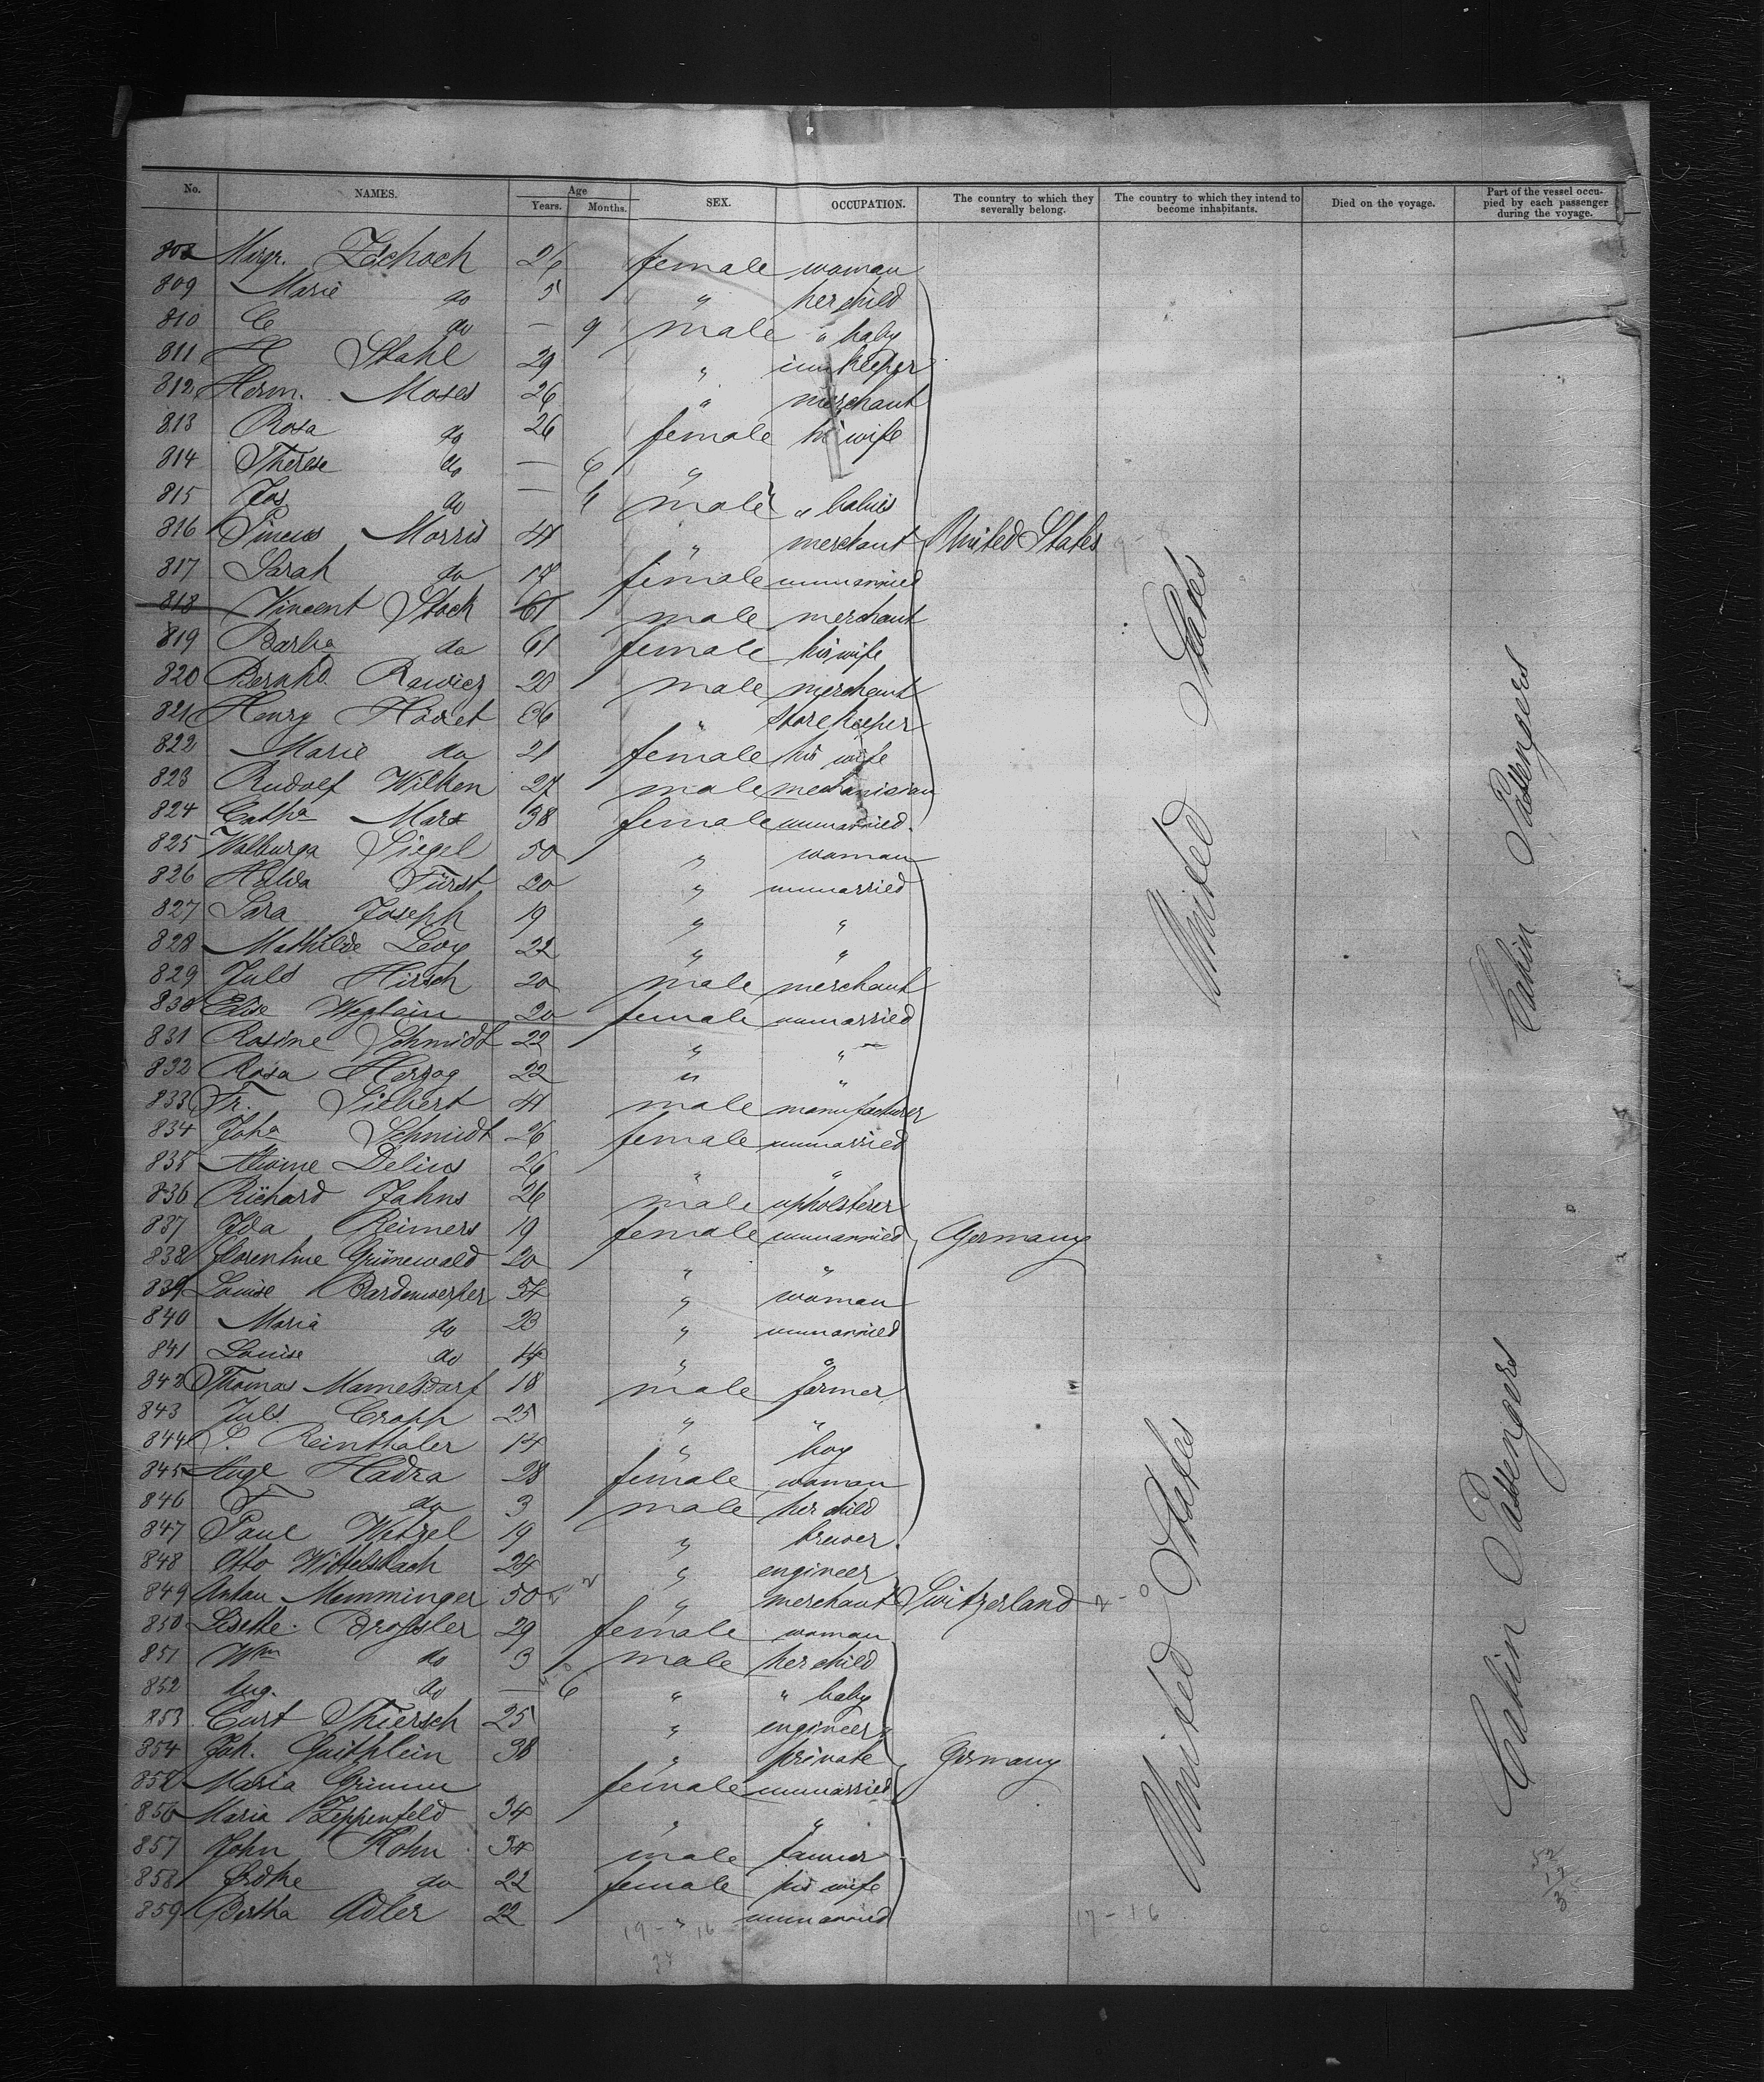 No. NAMES. Age Years. Months. SEX. OCCUPATION. The country to which they severally belong. The country to which they intend to become inhabitants. Died on the voyage. Part of the vessel occupied by each passenger during the voyage.
808 Margr. Zschoch 26 female woman
809 Marie do 5 " her child
810 C do — 9 male " baby
811 H Stahl 29 " innkeeper
812 Herm. Moses 26 " merchant
813 Rosa do 26 female his wife
814 Therese do — 6 "
815 Jos do — 6 male " babies
816 Pincus Morris 41 " merchant United States
817 Sarah do 17 female unmarried
818 Vincent Stock 61 male merchant
819 Barba do 61 female his wife
820 Bernhd. Rawicz 20 male merchant
821 Henry 36 " storekeeper
822 Marie do 21 female his wife
823 Rudolf Wilken 27 male mechanician
824 Catha Marx 38 female unmarried
825 Walburga Siegel 50 " woman
826 Hilda Fürst 20 " unmarried
827 Sara Joseph 19 " "
828 Mathilde Levy 22 " "
829 Juls Hirsch 20 male merchant
830 Elise Weglein 20 female unmarried
831 Rosine Schmidt 22 " "
832 Rosa Herzog 22 " "
833 Fr. Siebert 41 male manufacturer
834 Joha Schmidt 26 female unmarried
835 Alwine Delius 26 " "
836 Richard Jahns 26 male upholsterer
837 Ida Reimers 19 female unmarried Germany
838 Florentine Grünewald 20 " "
839 Louise Bardenwerper 54 " woman
840 Maria do 23 " unmarried
841 Louise do 14 " "
842 Thomas Mamelsdorf 18 male farmer
843 Juls. Cropp 25 " "
844 S. Reinthaler 14 " boy
845 Auge Hadra 28 female woman
846 F do 3 male her child
847 Paul Wetzel 19 " brewer
848 Otto Wittelsbach 24 " engineer
849 Anton Memminger 50 " merchant Switzerland
850 Lisette Drossler 29 female woman
851 Wm do 3 male her child
852 Aug. do — 6 " " baby
853 Curt Thiersch 25 " engineer
854 Joh. 38 " private Germany
855 Maria Grimm female unmarried
856 Maria Zeppenfeld 34 " "
857 John Kohn 34 male farmer
858 do 22 female his wife
859 Bertha Adler 22 " unmarried
United States
Cabin Passengers
United States
Cabin Passengers
17-16